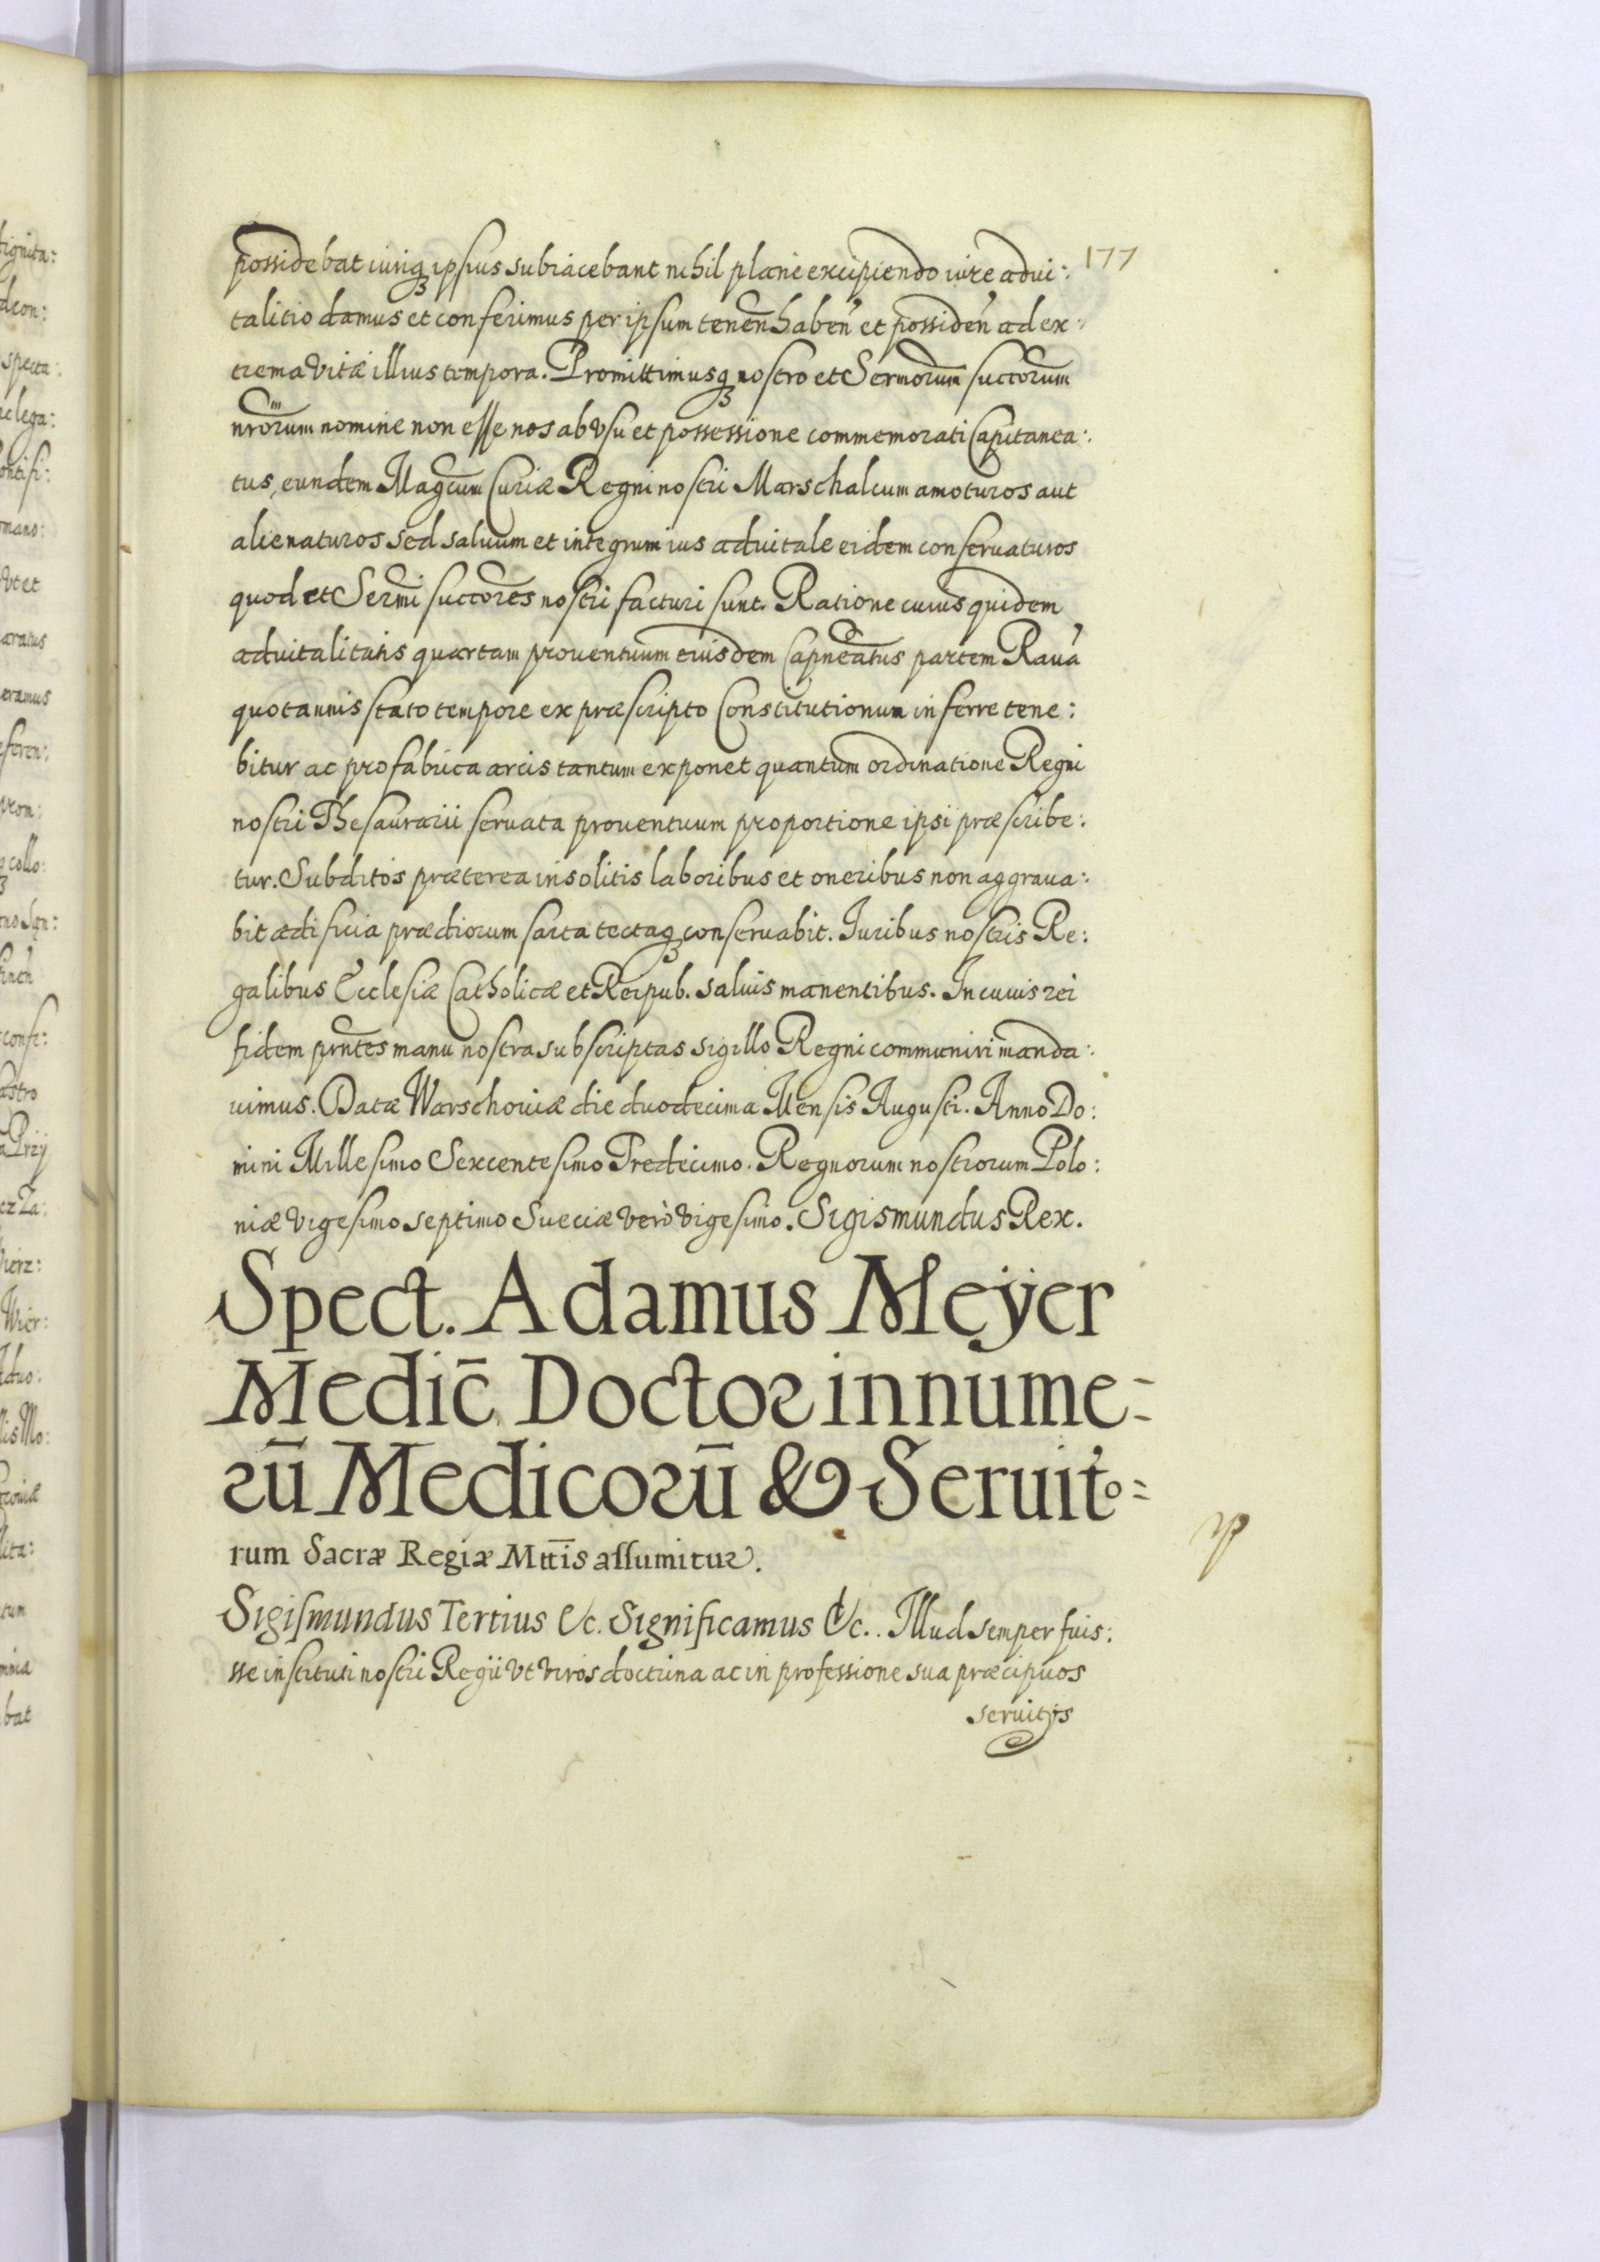 177
possidebat iurisq3 ipsius subiacebant nihil plane excipiendo iure advi:
talitio damus et conferimus per ipsum tenen̄ haben̄ et possiden̄ ad ex:
trema vitæ illius tempora. Promittimusq3 nostro et Sermorum succorum
nrorum nomine non esse nos ab vsu et possessione commemorati Capitanea:
tus, eundem Magcum Curiæ Regni nostri Marschalcum amoturos aut
alienaturos sed saluum et integrum ius aduitale eidem conseruaturos
quod et Sermi succores nostri facturi sunt. Ratione cuius quidem
aduitalitatis quartam prouentuum eiusdem Capneatus partem Raua'
quotannis stato tempore ex præscripto Constitutionum inferre tene:
bitur ac pro fabrica arcis tantum exponet quantum ordinatione Regni
nostri Thesaurarii seruata prouentuum proportione ipsi præscribe:
tur. Subditos præterea insolitis laboribus et oneribus non aggraua:
bit ædificia prædiorum sarta tectaq3 conseruabit. Iuribus nostris Re:
galibus Ecclesiæ Catholicæ et Reipub. saluis manentibus. In cuius rei
fidem prntes manu nostra subscriptas sigillo Regni communiri manda:
uimus. Datæ Warschouiæ die duodecima Mensis Augusti. Anno Do:
mini Millesimo Sexcentesimo Tredecimo. Regnorum nostrorum Polo:
niæ vigesimo septimo Sueciæ verò vigesimo. Sigismundus Rex.
Spect. Adamus Meÿer
Medic̄ Doctor in nume=
rū Medicorū & Seruito=
rum Sacræ Regiæ Mttis assumitur.
Sigismundus Tertius &c. Significamus &c.. Illud semper fuis:
sse instituti nostri Regii vt viros doctrina ac in professione sua præcipuos
seruitijs